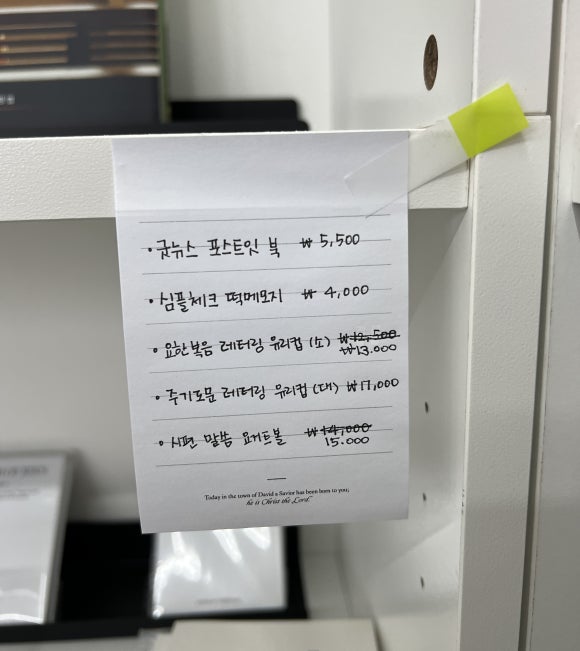 • 굿뉴스 포스트잇 북 ₩ 5,500
• 심플체크 떡메모지 ₩ 4,000
• 요한복음 레터링 유리컵 (소) ₩12,500
₩13.000
• 주기도문 레터링 유리컵 (대) ₩17,000
• 시편 말씀 요거트볼 ₩14,000
15.000
Today in the town of David a Savior has been born to you;
he is Christ the Lord.